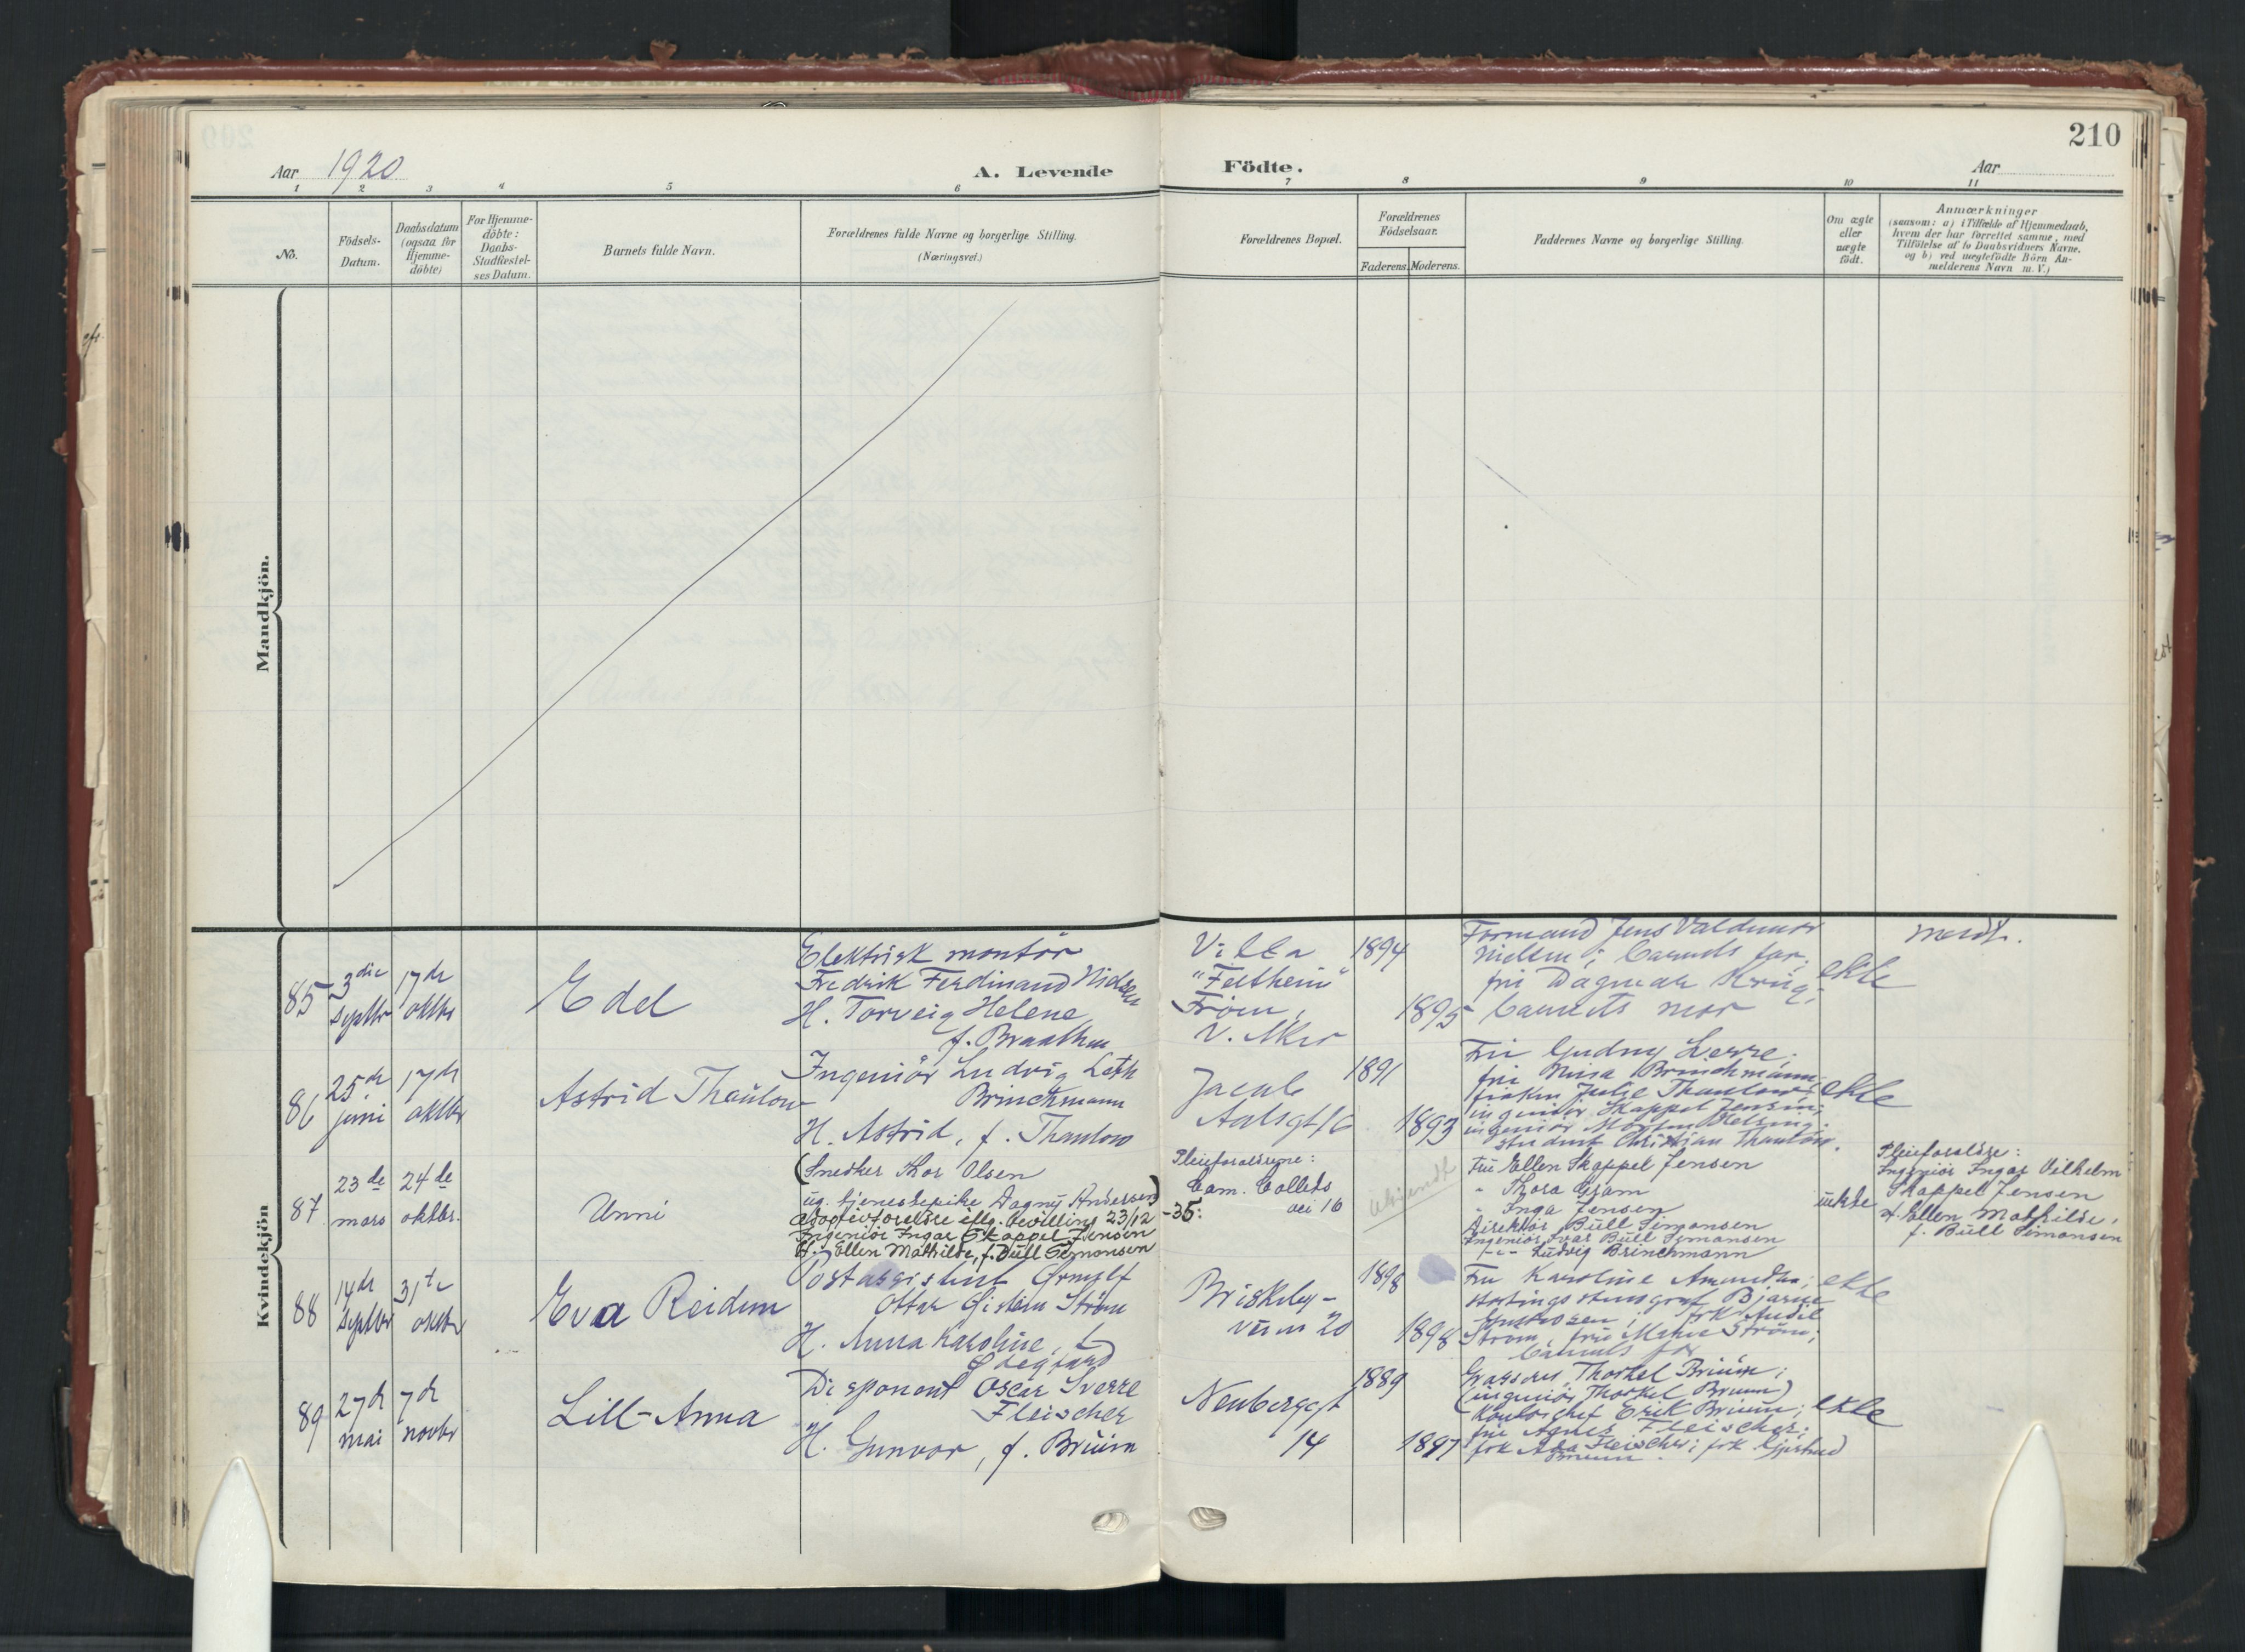 210
Aar 1920
A. Levende
Födte.
Aar
1 2 3 4 5 6 7 8 9 10 11
No.
Födsels-
Datum.
Daabsdatum
(ogsaa for
Hjemme-
döbte)
For Hjemme-
döbte:
Daabs-
Stadfæstel-
ses Datum.
Barnets fulde Navn.
Forældrenes fulde Navne og borgerlige Stilling.
(Næringsvei.)
Forældrenes Bopæl.
Forældrenes
Födselsaar.
Faderens.
Moderens.
Faddernes Navne og borgerlige Stilling.
Om ægte
eller
uægte
födt.
Anmærkninger
(saasom: a) i Tilfælde af Hjemmedaab,
hvem der har forrettet samme, med
Tilföielse af to Daabsvidners Navne,
og b) ved uægtefödte Börn An-
melderens Navn m. V.)
Mandkjön.
Kvindekjön
85
3die
septbr
17de
oktbr
Edel
Elektrisk montör
Fredrik Ferdinand Nielsen
H. Torveig Helene
f. Braathen
Villa
"Feltheim"
Fröen,
V. Aker
1894
1895
Formand Jens Valdemar
Nielsen; barnets far;
fru Dagmar
barnets mor
ekte
86
25de
juni
17de
oktbr
Astrid Thaulow
Ingeniör Ludvig Leth
Brinchmann
H. Astrid, f. Thaulow
Jacob
Aalsgt 16
1891
1893
Fru Gudny
fru Brinchmann;
frøken Julie Thaulow;
ingeniör Skappel Jensen;
ingeniör Morten
student Christian Thaulow.
ekte
87
23de
mars
24de
oktbr.
Unni
(Snedker Thor Olsen
ug. tjenestepike Dagny Andersen)
Adoptivforeldre iflg. bevilling 23/12
-35:
Ingeniör Ingar Skappel Jensen
H. Ellen Mathilde, f. Bull Simonsen
Pleieforældrene:
Cam. Colletts
vei 16
Fru Ellen Skappel Jensen
" Thora Gram
" Inga Jensen
Direktör Bull Simonsen
Ingeniör Ivar Bull Simonsen
-"- Ludvig Brinchmann
uekte
Pleieforældre:
Ingeniör Ingar Vilhelm
Skappel Jensen
H. Ellen Mathilde,
f. Bull Simonsen
88
14de
septbr
31te
oktbr
Eva Reidun
Postassistent Ørnulf
Ottar Øistein Ström
H. Anna Karoline, f.
Ødegaard
Briskeby-
veien 20
1898
1898
Fru Karoline
stortingsstenograf Bjarne
Ström, fru Ström;
barnets far
ekte
89
27de
mai
7de
novbr
Lill-Anna
Disponent Oscar Sverre
Fleischer
H. Gunvor, f. Bruun
Neuberggt
14
1889
1897
Grosserer Thorkel Bruun;
(ingeniör Thorkel Bruun)
Kontorchef Erik Bruun;
fru Agnes Fleischer;
frk Aga Fleischer; frk Gjertrud
Bruun.
ekte